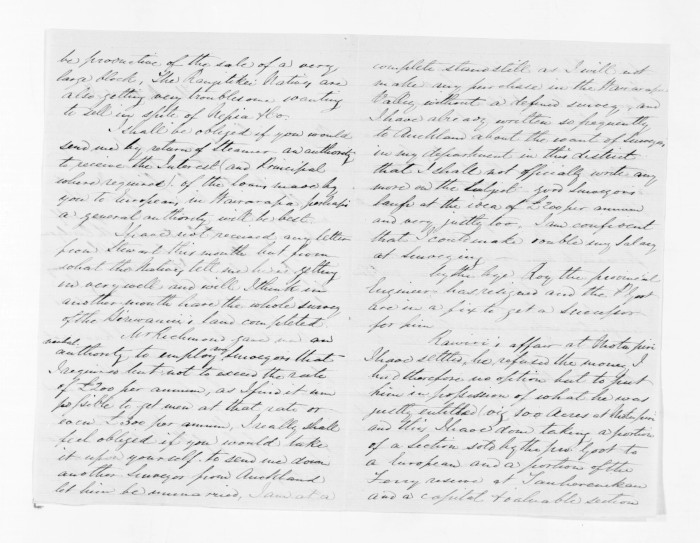 be productive of the sale of a very
large block, The Rangitikei Natives are
also getting very troublesome wanting
to sell in spite of Hepia &Co.
I shall be obliged if you would
send me by return of Steamer an authority
to receive the Interest (and Principal
where required) of the loans made by
you to Europeans in Wairarapa, perhaps
a general authority will be best.
I have not received any letter
from Stewart this month but from
what the Natives tell me he is getting
on very well and will I think in
another month have the whole survey
of the land completed.
Mr Richmond gave me an
authority to employ any Surveyors that
I required but not to exceed the rate
of £200 per annum, as I find it im
possible to get men at that rate or
even £300 per annum, I really shall
feel obliged if you would take
it upon yourself to send me down
another Surveyor from Auckland
let him be unmarried, I am at a
complete standstill as I will not
make any purchase in the Wairarapa
Valley without a defined survey, and
I have already written so frequently
to Auckland about the want of Surveyors
in my department in this district
that I shall not officially write any
more on the subject - good surveyors
laugh at the idea of £200 per annum
and very justly too. I am confident
that I could make double my salary
at surveying.
by the bye Roy the provincial
Engineer has resigned and the P Govt
are in a fix to get a successor
for him
Rawiri's affair at
I have settled, he refused the money I
had therefore no option but to put
him in possession of what he was
justly entitled (viz 300 acres at
and this I have done taking a portion
of a section sold by the pro. Govt to
a European and a portion of the
Ferry reserve at Tauherenikau
and a capital & valuable section